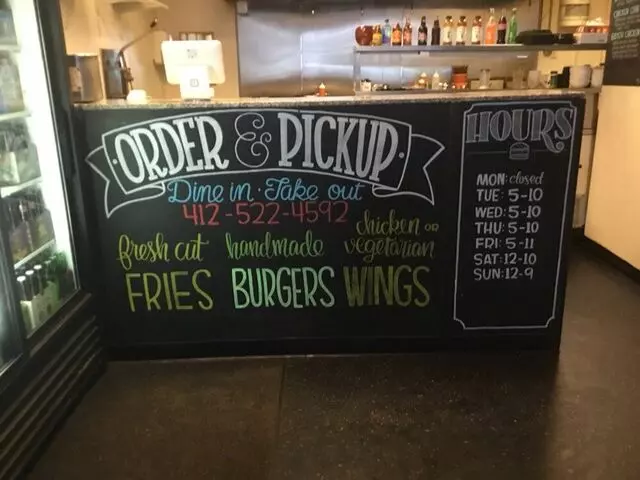 ORDER & PICKUP
Dine in · Take out
412-522-4592
fresh cut
FRIES
handmade
BURGERS
chicken or
vegetarian
WINGS
HOURS
MON: closed
TUE: 5-10
WED: 5-10
THU: 5-10
FRI: 5-11
SAT: 12-10
SUN: 12-9